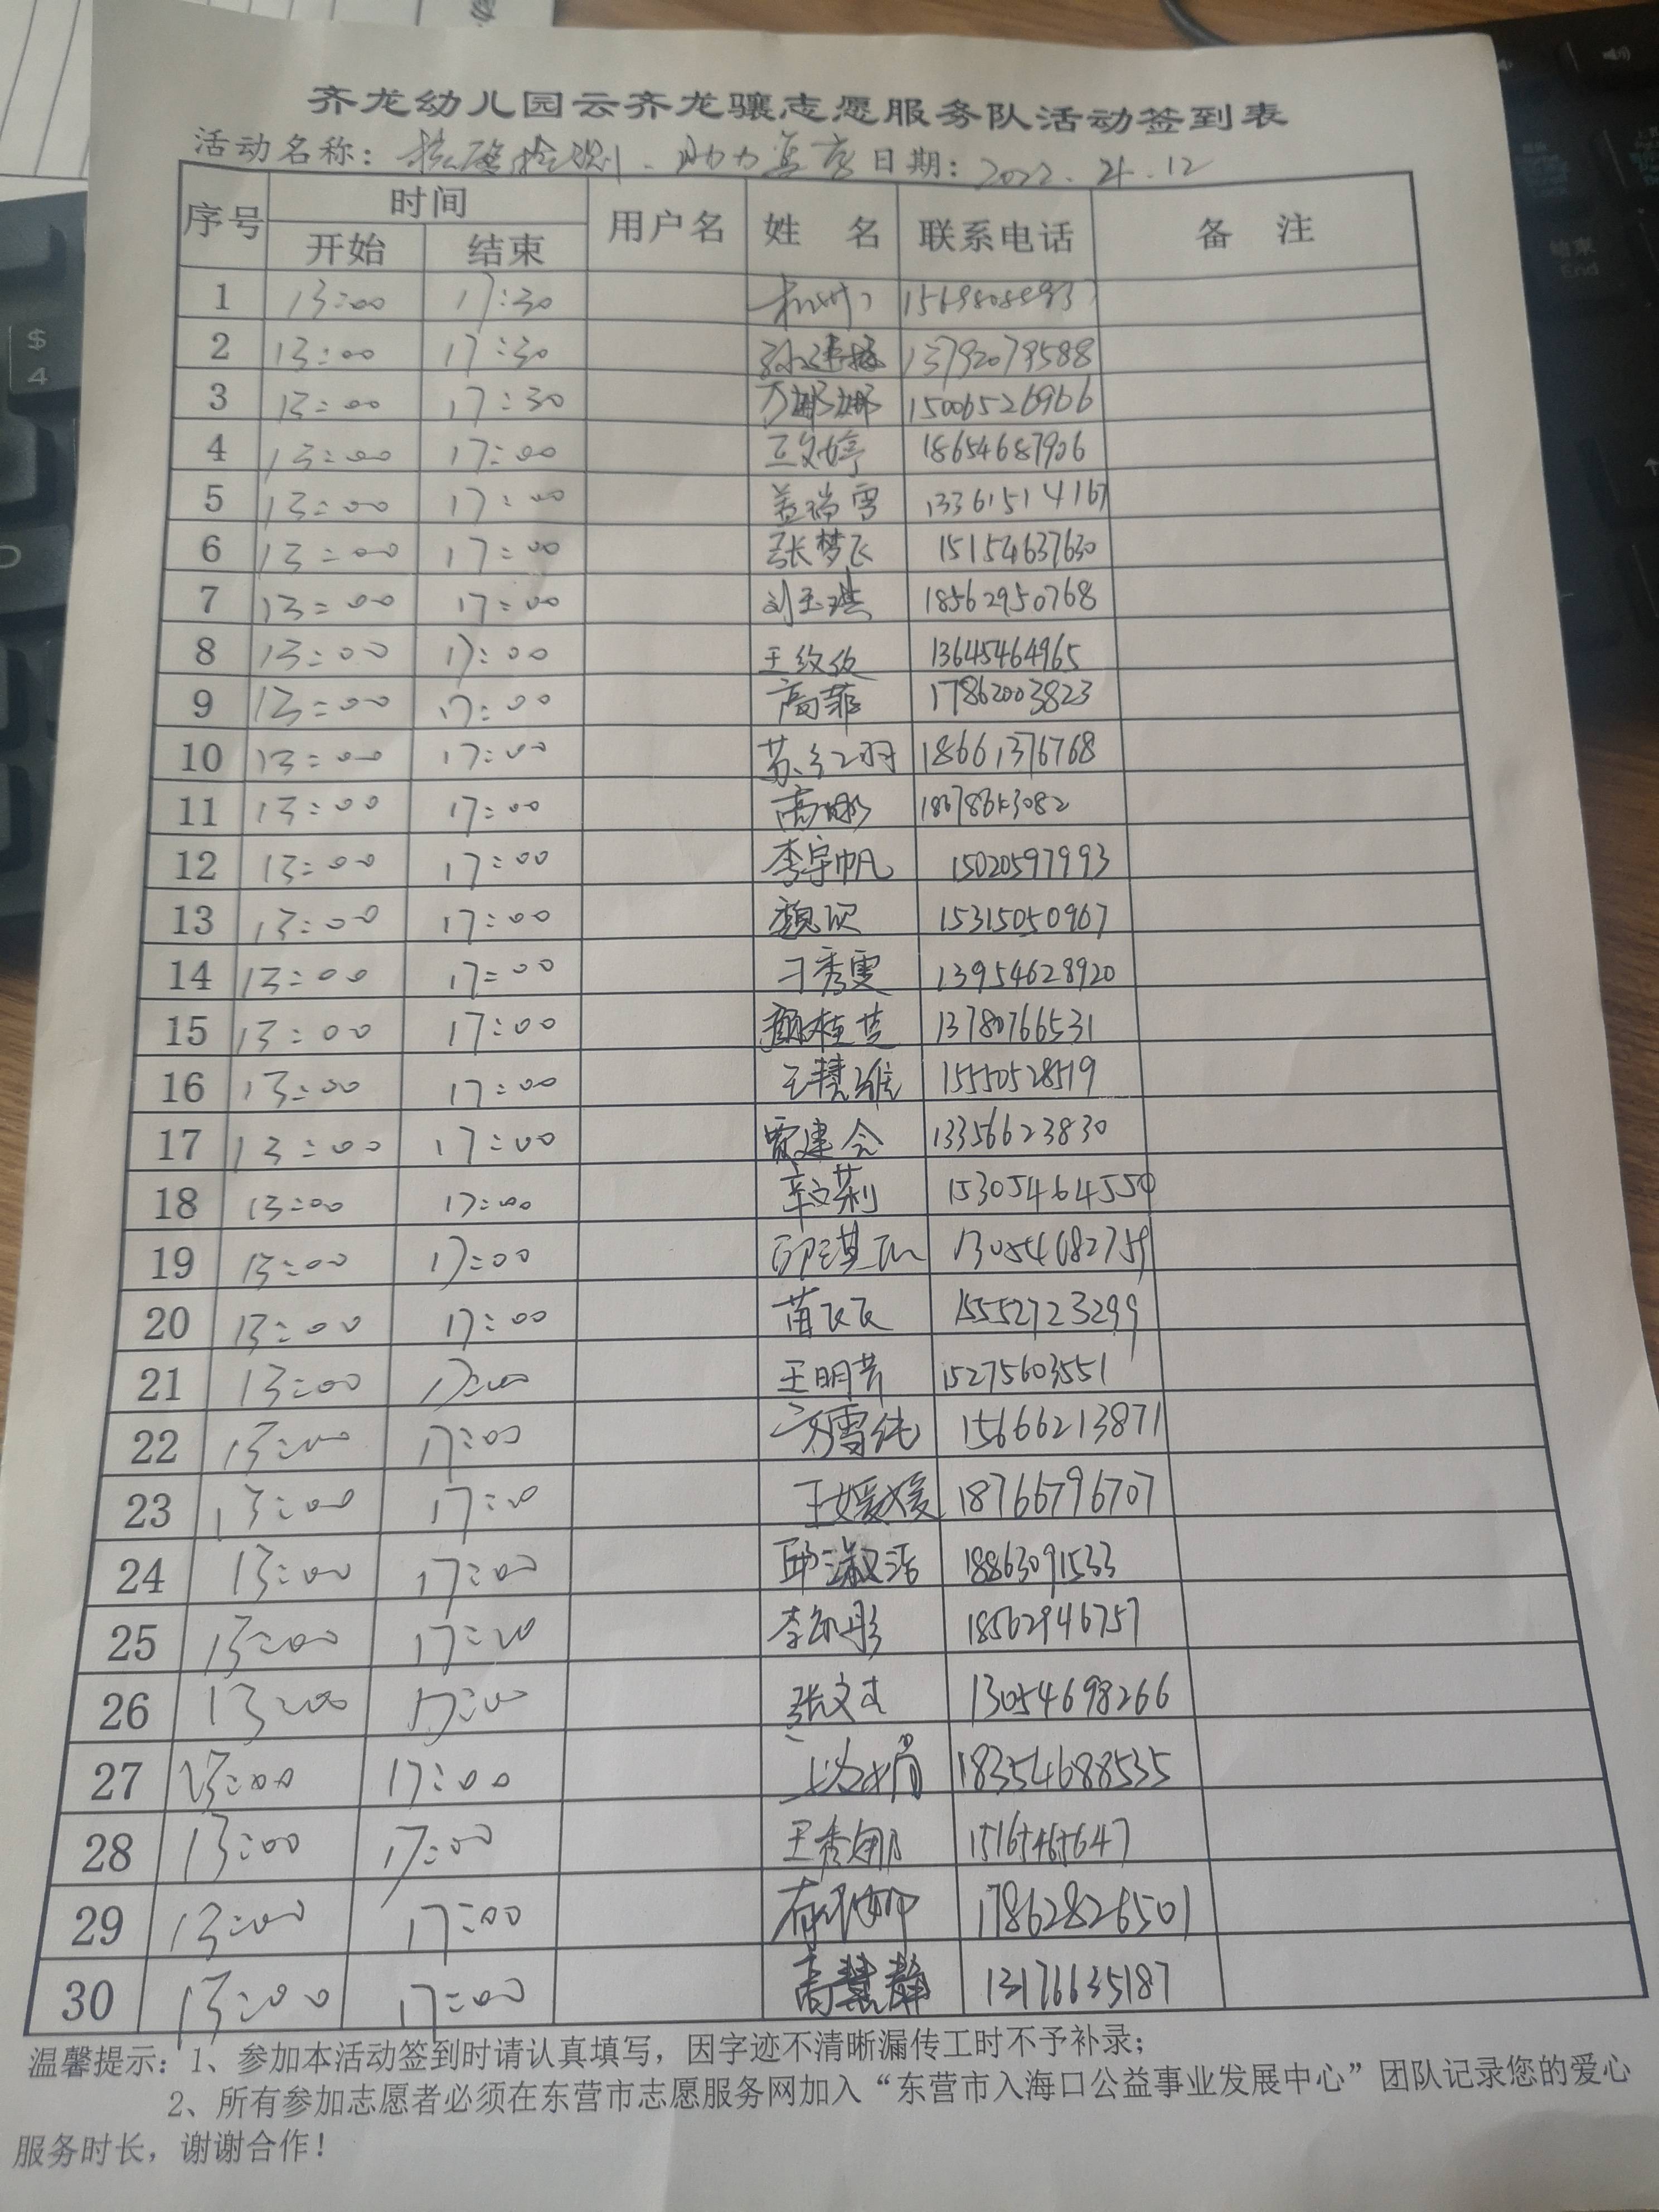 齐龙幼儿园云齐龙骧志愿服务队活动签到表
活动名称：核酸检测、助力 日期：2022.4.12
序号 时间 用户名 姓 名 联系电话 备 注
开始 结束
1 13:00 17:30
2 13:00 17:30 13792079588
3 13:00 17:30 万娜娜 15006526966
4 13:00 17:00 王文婷 18654687906
5 13:00 17:00 盖瑞雪 13361514167
6 13:00 17:00 张梦飞 15154637630
7 13:00 17:00 刘玉琪 18562950768
8 13:00 17:00 王 13645464965
9 13:00 17:00 高菲 17862003823
10 13:00 17:00 苏红羽 18661376768
11 13:00 17:00 高娜
12 13:00 17:00 李宇帆 15020597993
13 13:00 17:00 魏欣 15315050967
14 13:00 17:00 刁秀雯 13954628920
15 13:00 17:00 颜桂芝 13780766531
16 13:00 17:00 王慧维 15550528519
17 13:00 17:00 贾建会 13356623830
18 13:00 17:00 辛文莉 15305464550
19 13:00 17:00 13054682759
20 13:00 17:00 苗飞飞 15552723299
21 13:00 17:00 王明芳 15275603551
22 13:00 17:00 雪纯 15666213871
23 13:00 17:00 王媛媛 18766796707
24 13:00 17:00 邱淑洁 18863091533
25 13:00 17:00 李凯彤 18562946757
26 13:00 17:00 张文 13054698266
27 13:00 17:00 18354688535
28 13:00 17:00 王秀娜
29 13:00 17:00 17862826501
30 13:00 17:00 高慧静 13176635187
温馨提示：1、参加本活动签到时请认真填写，因字迹不清晰漏传工时不予补录；
2、所有参加志愿者必须在东营市志愿服务网加入“东营市入海口公益事业发展中心”团队记录您的爱心
服务时长，谢谢合作！